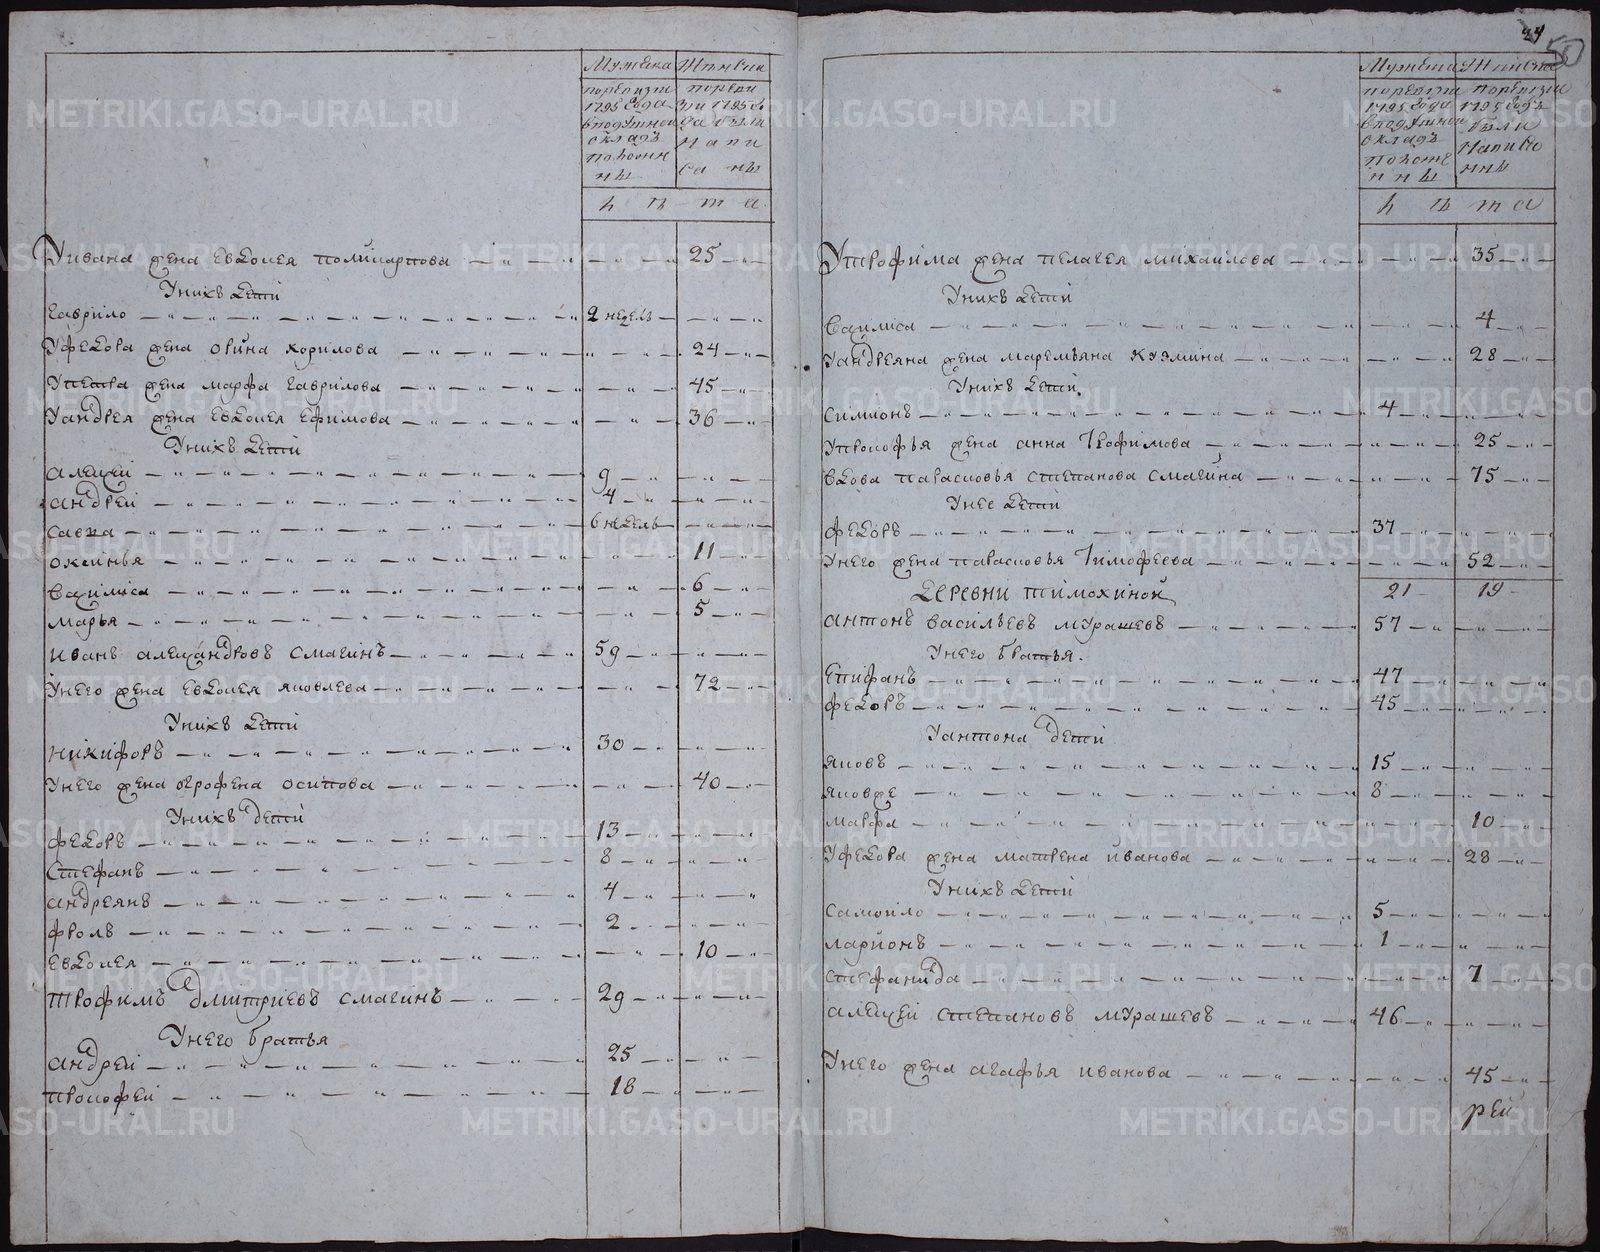 Мужеска Женска
поревизи пореви
1795 года зи 1795 го
вподушном да были
окладъ напи
положен саны
ны
лѣта
Уивана жена Евдокея поликарпова 25
Уних дети
Гаврило 2 неделъ
Уфедора жена орина корилова 24
Упетра жена марфа Гаврилова 45
Уандрея жена Евдокея Ефимова 36
Унихъ дети
алексей 9
андрей 4
савва 6 недель
оксинья 11
василиса 6
марья 5
иванъ александровъ смагинъ 59
Унего жена Евдокея яковлева 72
Унихъ дети
никифоръ 30
Унего жена огрофена осипова 40
Унихъ дети
федоръ 13
стефанъ 8
андреянъ 4
фролъ 2
Евдокея 10
трофимъ дмитриевъ смагинъ 29
Унего братья
андрей 25
прокофей 18
24
50
Мужеска Женска
поревизи поревизи
1795 года 1795 годъ
вподушной были
окладъ написа
положе нны
нны
лѣта
Утрофима жена пелагея михаилова 35
Унихъ дети
василиса 4
Уандреяна жена маремьяна кузмина 28
Унихъ дети
симионъ 4
Упрокофья жена анна трофимова 25
вдова парасковья степанова смагина 75
Унее дети
федоръ 37
Унего жена парасковья тимофеева 52
21 19
деревни тимохиной
антонъ васильевъ мурашевъ 57
Унего братья.
Епифанъ 47
федоръ 45
Уантона дети
яковъ 15
яковже 8
марфа 10
Уфедора жена матрена иванова 28
Унихъ дети
самойло 5
ларионъ 1
стефанида 7
алексей степановъ мурашевъ 46
Унего жена агафья иванова 45
рей
METRIKI.GASO-URAL.RU